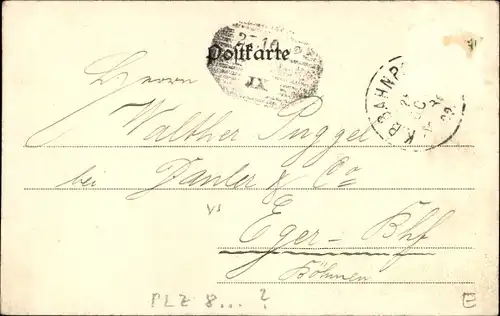 Postkarte
IX
K.B.BAHNP.
Herrn
Walther Puggel
bei Danler & Co
Eger - Bhf
Böhmen
PLZ 8... ?
E